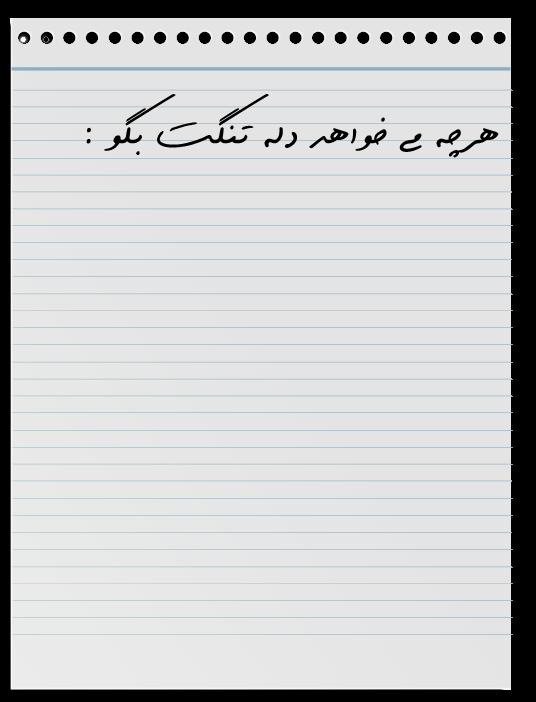 هرچه می خواهد دل تنگت بگو :